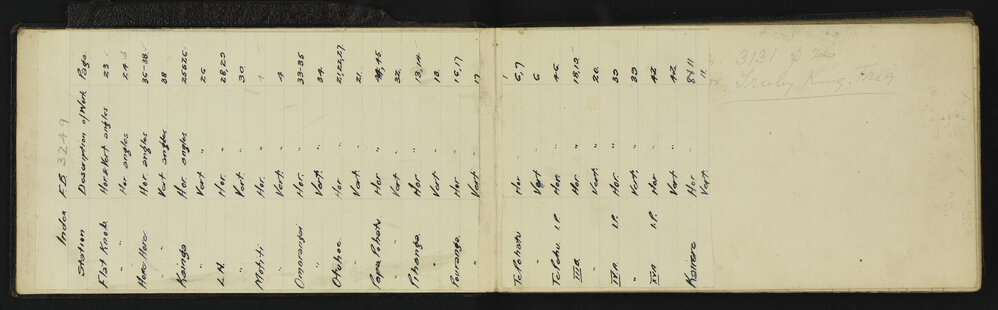 Index F.B. 3249
Station Description of Work Page
Flat Knob Hor & Vert angles 23
" Hor angles 24
Hore Hore Hor angles 36-38
" Vert angles 38
Kaingo Hor angles 25&26
" Vert " 26
L.N. Hor. " 28,29
" Vert. " 30
Motiti Hor. "
" Vert. " 4
Omaranga Hor. " 33-35
" Vert. " 34
Otohoe Hor " 21,26,27
" Vert " 21
Papa Pohatu Hor " 45
" Vert " 32
Pihanga Hor " 13,14
" Vert " 13
Pouranga Hor " 16,17
" Vert " 17
Te Pohatu Hor " 6,7
" Vert " 6
Te Pohu I.P. Hor " 46
VIII a Hor " 18,19
" Vert " 20
I.P. Hor " 39
" Vert " 39
I.P. Hor " 42
" Vert " 42
Hor " 8&11
Vert " 11
3131 Ø 26
Truby King. Frig